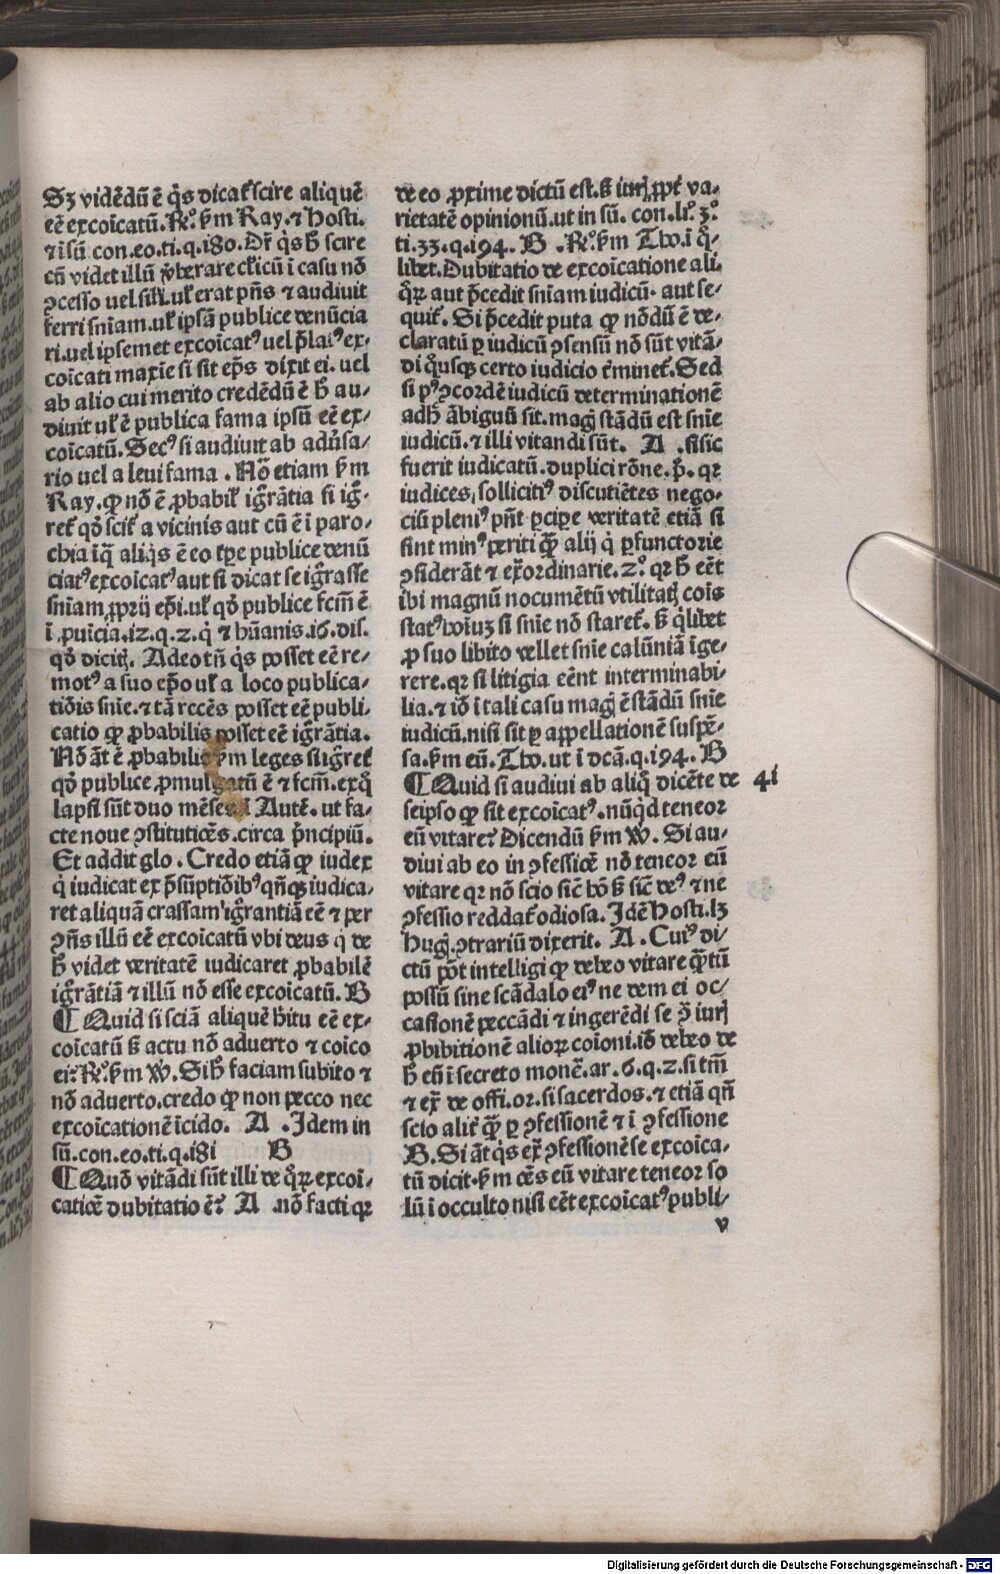 Sꝫ vidēdū ē q̄s dicat̄ scire aliquē
eē excoīcatū. ℞º. ẜm Ray. ⁊ hosti.
⁊ ī sū con. eo. ti. q. i80. Dr̄ q̄s h̄ scire
cū videt illū v̄berare cl̄icū ī casu nō
ꝯcesso uel sili. ul̄ erat p̄ns ⁊ audiuit
ferri sn̄iam. ul̄ ipsā publice denūcia
ri. uel ipsemet excoīcatꝰ uel p̄latꝰ ex-
coīcati maxīe si sit ep̄s dixit ei. uel
ab alio cui merito credēdū ē h̄ au-
diuit ul̄ ē publica fama ipsū eē ex-
coīcatū. Secꝰ si audiuit ab adūsa-
rio uel a leui fama. Nō etiam ẜm
Ray. ꝙ nō ē ꝓbabil̄ igr̄ātia si igr̄-
ret̄ qd̄ scit̄ a vicinis aut cū ē ī paro-
chia ī q̄ aliq̄s ē eo tp̄e publice denū
ciatꝰ excoīcatꝰ aut si dicat se igr̄asse
sn̄iam ꝓprij ep̄i. ul̄ qd̄ publice fcm̄ ē
ī ꝓuīcia. i2. q. 2. q̄ ⁊ hūanis. i6. dis.
qd̄ dicit̄. Adeo tn̄ q̄s posset eē re-
motꝰ a suo ep̄o ul̄ a loco publica-
tiōis sn̄ie. ⁊ tā recēs posset eē publi-
catio ꝙ ꝓbabilis posset eē igr̄ātia.
Nō āt ē ꝓbabilis ẜm leges si igr̄ret̄
qd̄ publice ꝓmulgatū ē ⁊ fcm̄. ex q̄
lapsi sūt duo mēses ī Autē. ut fa-
cte noue ꝯstitutiōes. circa p̄ncipiū.
Et addit glo. Credo etiā ꝙ iudex
q̄ iudicat ex p̄sūptiōibꝰ qn̄qꝫ iudica-
ret aliquā crassam igr̄antiā eē ⁊ per
ꝯn̄s illū eē excoīcatū vbi deus q̄ de
h̄ videt veritatē iudicaret ꝓbabilē
igr̄ātiā ⁊ illū nō esse excoīcatū. B
¶ Quid si sciā aliquē h̄itu eē ex-
coīcatū ẜ actu nō aduerto ⁊ coīco
ei: ℞º. ẜm W. Si h̄ faciam subito ⁊
nō aduerto. credo ꝙ non pecco nec
excoīcationē īcido. A. Idem in
sū. con. eo. ti. q. i8i B
¶ Quō vitādi sūt illi de q̄ꝝ excoī-
catiōe dubitatio ē? A. nō facti qꝛ
de eo ꝓxime dictū est. ẜ iuris ꝓpt̄ va-
rietatē opinionū. ut in sū. con. li. 3º.
ti. 33. q. i94. B. ℞º. ẜm Tho. ī q̄-
libet. Dubitatio de excoīcatione ali-
q̄ꝝ aut p̄cedit sn̄iam iudicū. aut se-
quit̄. Si p̄cedit puta ꝙ nōdū ē de-
claratū ꝑ iudicū ꝯsensū nō sūt vitā-
di q̄usqꝫ certo iudicio t̄minet̄. Sed
si pꝰ ꝯcordē iudicū determinationē
adh̄ ābiguū sit. maḡ stādū est sn̄ie
iudicū. ⁊ illi vitandi sūt. A. si sic
fuerit iudicatū. duplici rōne. p̄. qꝛ
iudices, sollicitiꝰ discutiētes nego-
cīū pleniꝰ pn̄t ꝑcipe veritatē etiā si
sint minꝰ periti q̄ꝫ alij q̄ ꝑfunctorie
ꝯsiderāt ⁊ ex̄ordinarie. 2º. qꝛ h̄ eēt
ibi magnū nocumētū vtilitatꝭ cois
statꝰ hoīuꝫ si sn̄ie nō staret̄. ẜ q̄libet
ꝓ suo libito vellet sn̄ie calūniā īge-
rere. qꝛ si litigia eēnt interminabi-
lia. ⁊ iō ī tali casu maḡ ē stādū sn̄ie
iudicū. nisi sit ꝑ appellationē suspē-
sa. ẜm eū. Tho. ut ī dcā. q. i94. B
¶ Quid si audiui ab aliq̄ dicēte de 4i
seipso ꝙ sit excoīcatꝰ. nūq̄d teneor
eū vitare? Dicendū ẜm W. Si au-
diui ab eo in ꝯfessiōe nō teneor eū
vitare qꝛ nō scio sic̄ hō ẜ sic̄ deꝰ ⁊ ne
ꝯfessio reddat̄ odiosa. Idē hosti. lꝫ
huḡ. ꝯtrariū dixerit. A. Cuiꝰ di-
ctū pōt intelligi ꝙ debeo vitare q̄ꝫtū
possū sine scādalo eiꝰ ne dem ei oc-
casionē peccādi ⁊ ingerēdi se ꝯ̄ iuris
ꝓbibitionē alioꝝ coīoni. iō debeo de
h̄ eū ī secreto monē. ar. 6. q. 2. si tm̄
⁊ ex̄ de offi. or. si sacerdos. ⁊ etiā qn̄
scio alit̄ q̄ꝫ ꝑ ꝯfessionē ⁊ ī ꝯfessione
B. Si āt q̄s ex̄ ꝯfessionē se excoīca-
tū dicit. ẜm oēs eū vitare teneor so
lū ī occulto nisi eēt excoīcatꝰ publi-
v
Digitalisierung gefördert durch die Deutsche Forschungsgemeinschaft - DFG